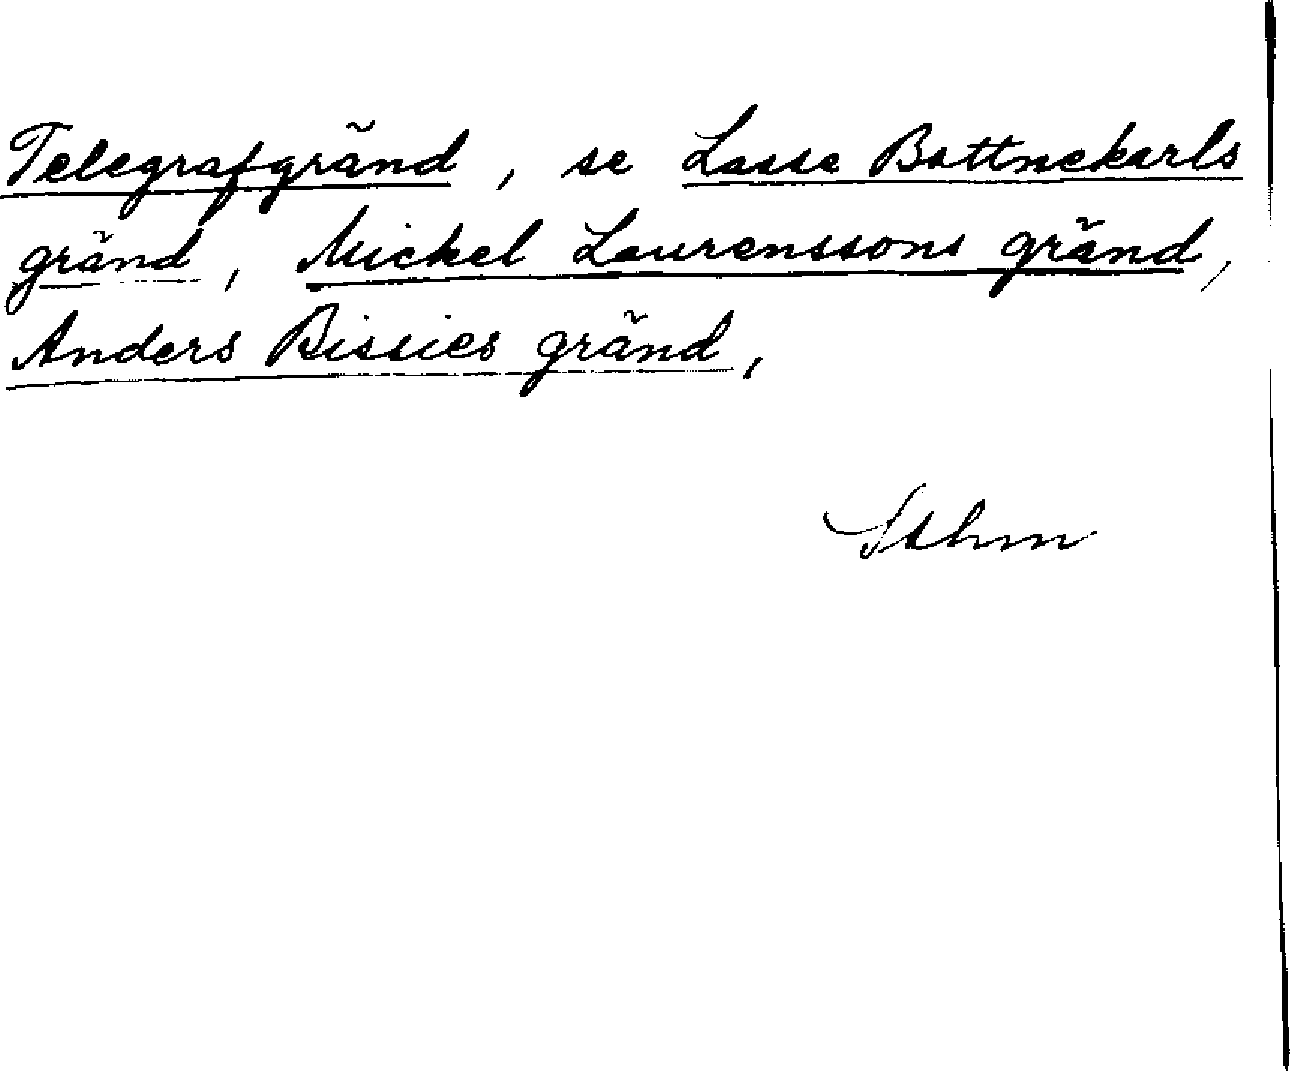 Telegrafgränd, se Lasse Bottnekarls
gränd, Mickel Laurenssons gränd,
Anders Bissies gränd,
Sthm